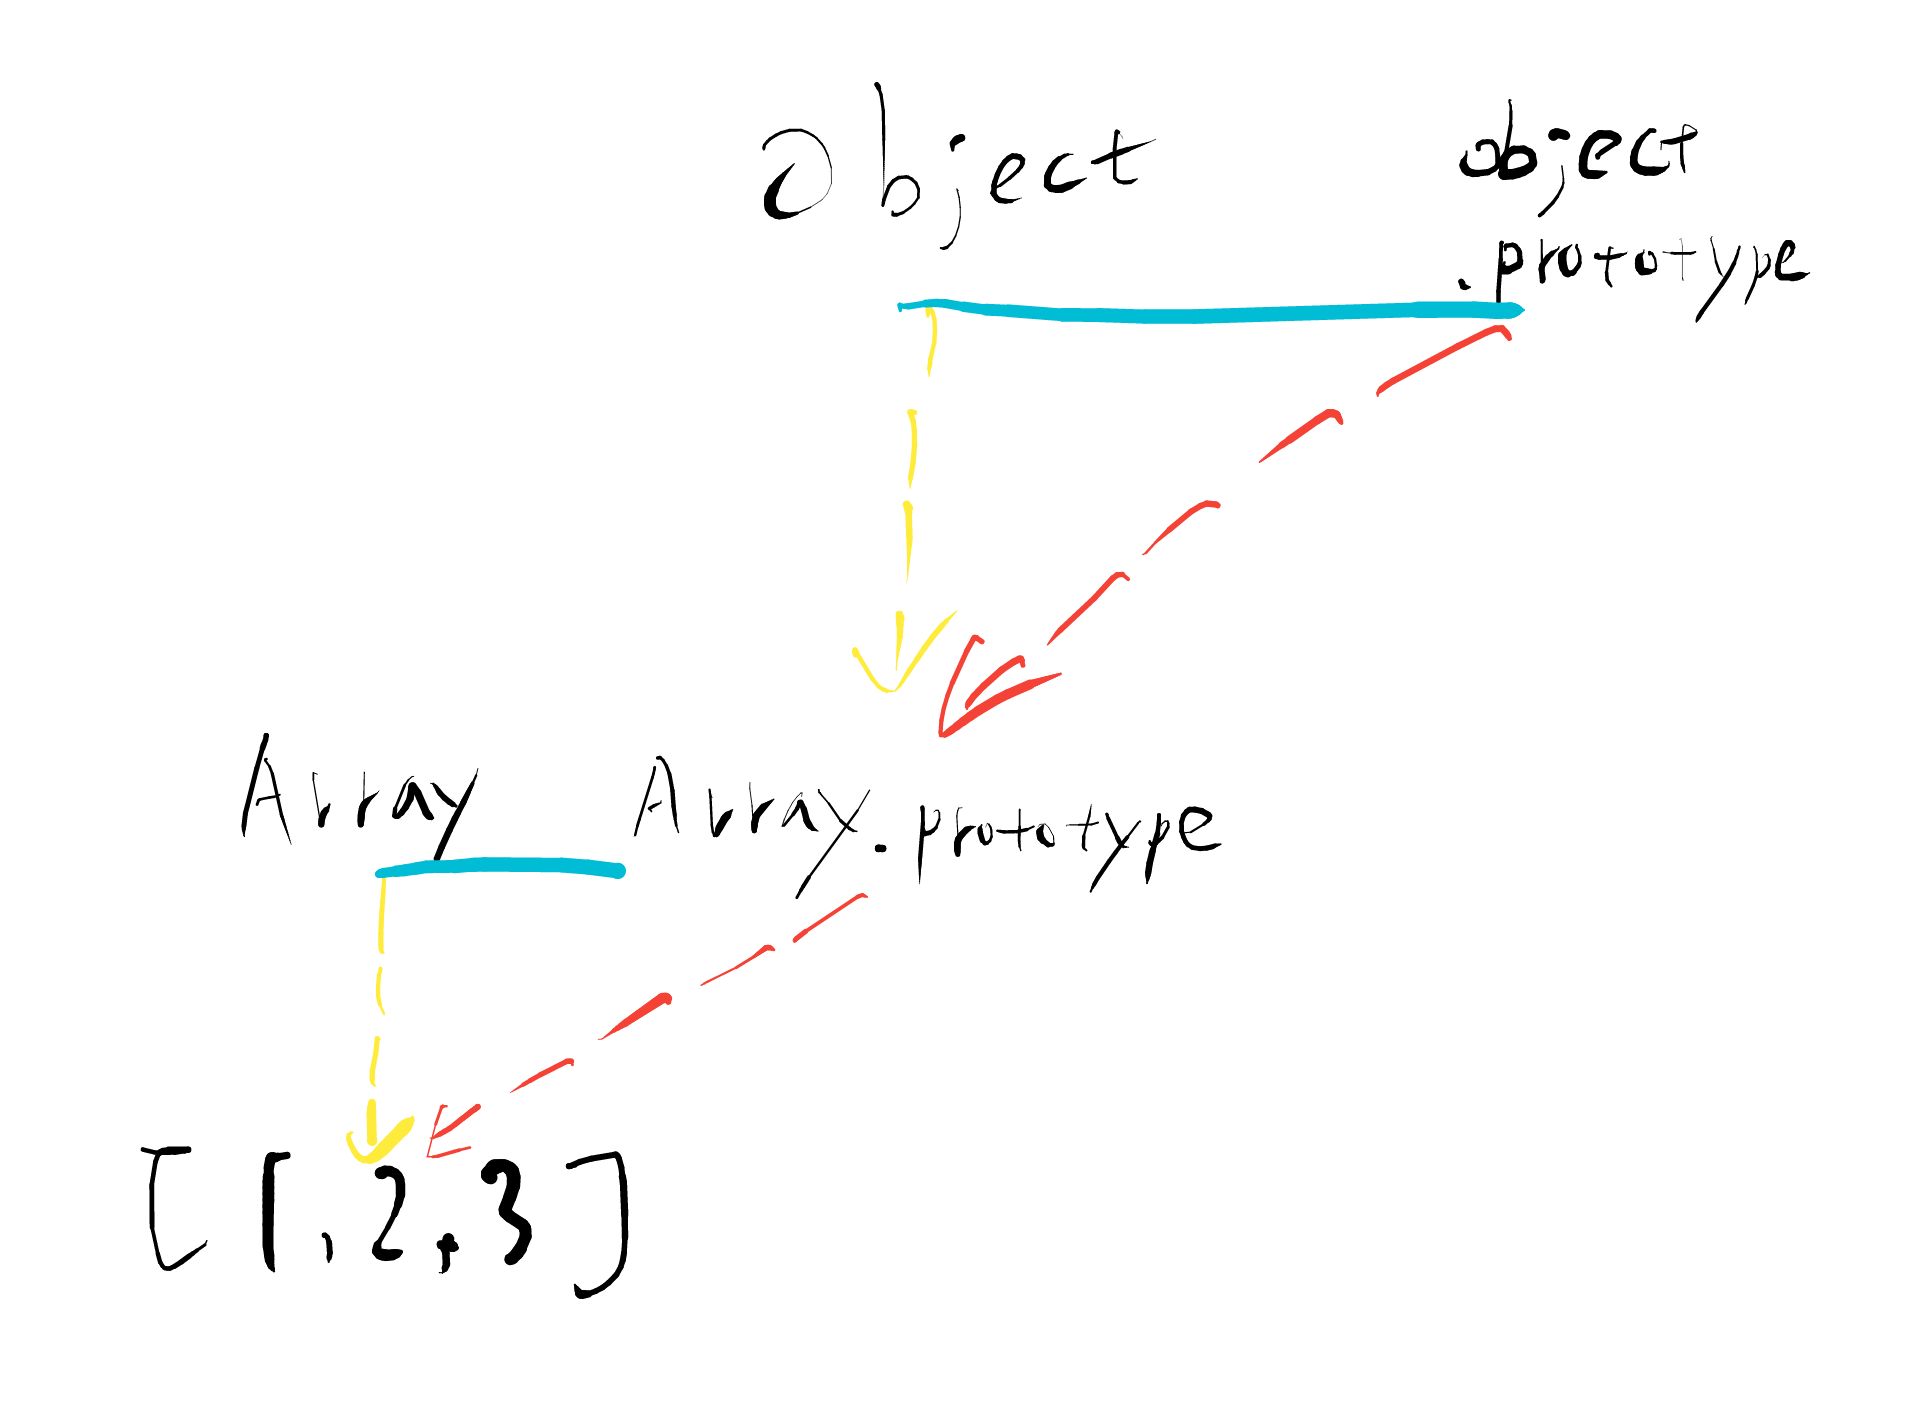 Object
object
.prototype
Array
Array.prototype
[1,2,3]